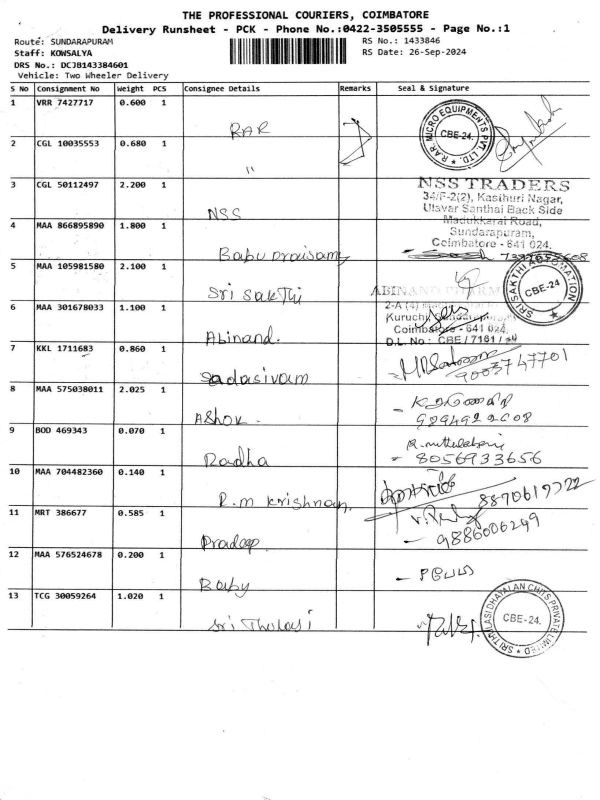 THE PROFESSIONAL COURIERS, COIMBATORE
Delivery Runsheet - PCK - Phone No.:0422-3505555 - Page No.:1
Route: SUNDARAPURAM
Staff: KOWSALYA
DRS No.: DCJB143384601
Vehicle: Two Wheeler Delivery
RS No.: 1433846
RS Date: 26-Sep-2024
S No Consignment No Weight PCS Consignee Details Remarks Seal & Signature
1 VRR 7427717 0.600 1 RAR
R.AR MICRO EQUIPMENTS PVT. LTD. CBE-24.
2 CGL 10035553 0.680 1 "
3 CGL 50112497 2.200 1 NSS
NSS TRADERS
34/F-2(2), Kasthuri Nagar,
Ulavar Santhai Back Side
Madukkarai Road,
Sundarapuram,
Coimbatore - 641 024.
4 MAA 866895890 1.800 1 Babu
5 MAA 105981580 2.100 1 Sri Sakthi
SRI SAKTHI AUTOMATION CBE-24
6 MAA 301678033 1.100 1 Abinand.
ABINAND PHARM
Coimbatore - 641 024,
D.L. No : CBE / 7161 /
7 KKL 1711683 0.860 1 Sadasivam
9003747701
8 MAA 575038011 2.025 1 Ashok.
9 BOD 469343 0.070 1 Radha
8056933656
10 MAA 704482360 0.140 1 R.m Krishnan.
11 MRT 386677 0.585 1 Pradeep.
9886006249
12 MAA 576524678 0.200 1 Baby
13 TCG 30059264 1.020 1 Sri Thulasi
SRI THULASI DHAYALAN CHITS PRIVATE LIMITED CBE-24.